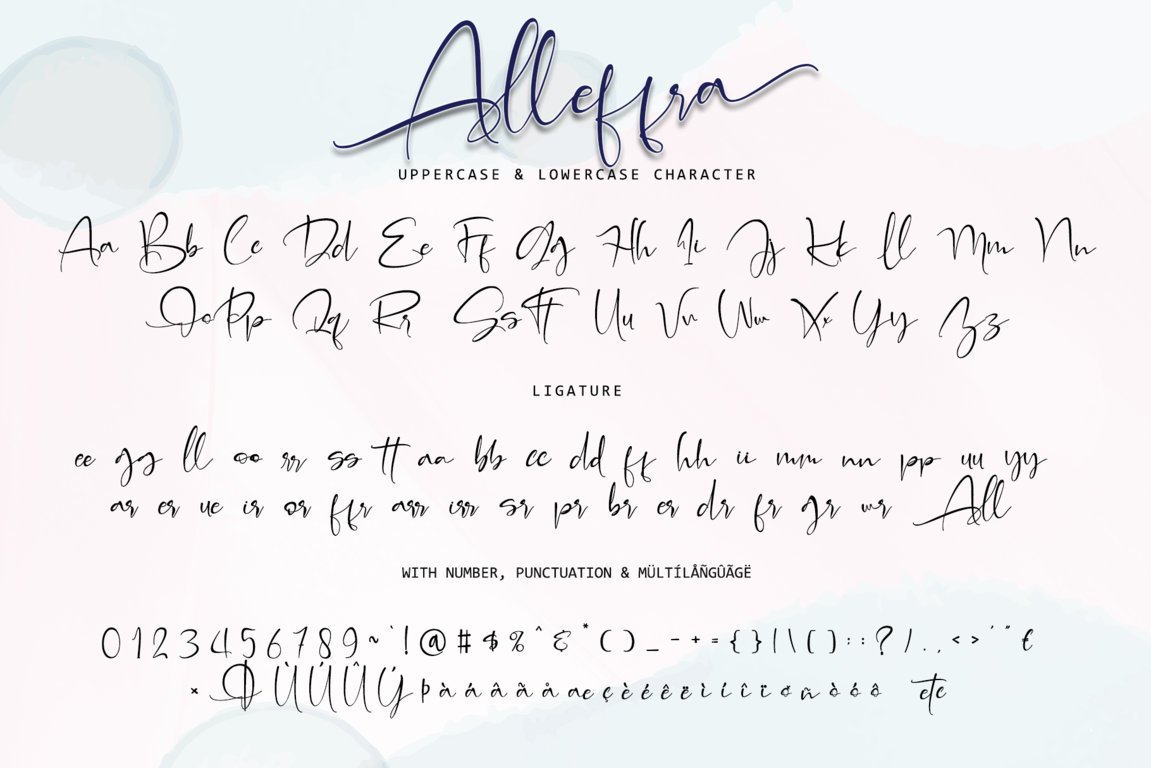 Alleffra
UPPERCASE & LOWERCASE CHARACTER
Aa Bb Cc Dd Ee Ff Gg Hh Ii Jj Kk Ll Mm Nn
Oo Pp Qq Rr Ss Tt Uu Vv Ww Xx Yy Zz
LIGATURE
ee gg ll oo rr ss tt aa bb cc dd ff hh ii mm nn pp uu yy
ar er ue ir or ffr arr irr sr pr br er dr fr gr wr All
WITH NUMBER, PUNCTUATION & MÜLTÍLÅÑGÛÃGË
0 1 2 3 4 5 6 7 8 9 ~ ` ! @ # $ % ^ & * ( ) _ - + = { } | \ ( ) : : ? / . , < > ' " €
× Ø Ù Ú Û Ý þ à á â ã å æ ç è é ê ë ì í î ï ø ñ ò ó ô etc